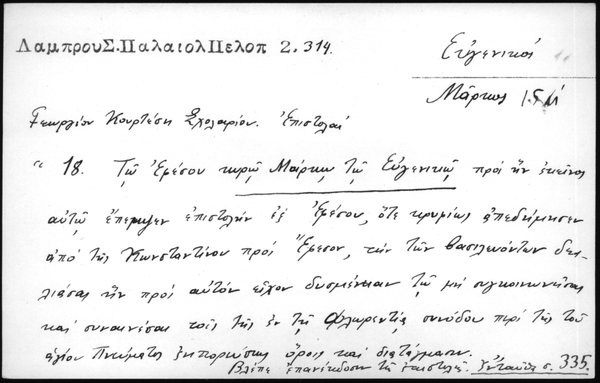 ΛαμπρουΣ.ΠαλαιολΠελοπ 2.314.
Εὐγενικοί
Μᾶρκος
Γεωργίου Κουρτέση Σχολαρίου. Ἐπιστολαί
" 18. Τῷ Ἐφέσου κυρῷ Μάρκῳ τῷ Εὐγενικῷ πρὸς ἣν ἐκεῖνος
αὐτῷ ἔπεμψεν ἐπιστολὴν ἐξ Ἐφέσου, ὅτε κρυφίως ἀπεδήμησεν
ἀπὸ τῆς Κωνσταντίνου πρὸς Ἔφεσον, τὴν τῶν βασιλευόντων δει-
λιάσας ἣν πρὸς αὐτὸν εἶχον δυσμένειαν τῷ μὴ συγκοινωνῆσαι
καὶ συναινέσαι τοῖς τῆς ἐν τῇ Φλωρεντίᾳ συνόδου περὶ τῆς τοῦ
ἁγίου Πνεύματος ἐκπορεύσεως ὅροις καὶ διατάγμασιν.
Βλέπε ἐπανέκδοσιν τῆς ἐπιστολῆς. Ἐνταῦθα σ. 335.